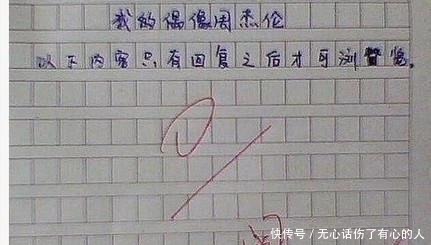 我的偶像周杰伦
以下内容只有回复之后才可浏览。
快传号/无心话伤了有心的人